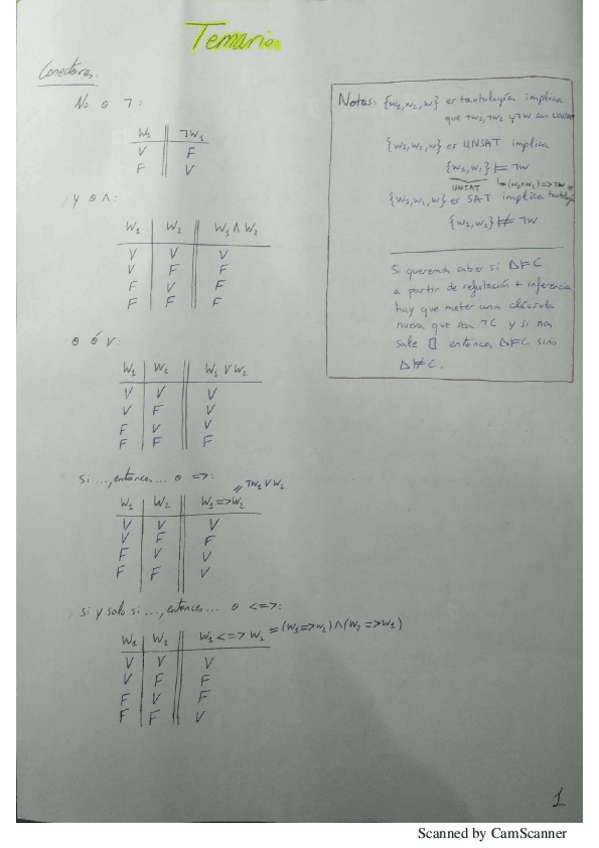 Temario
Conectores:
No o ¬:
W1 ¬W1
V F
F V
y o ∧:
W1 W2 W1 ∧ W2
V V V
V F F
F V F
F F F
o ó ∨:
W1 W2 W1 ∨ W2
V V V
V F V
F V V
F F F
si ..., entonces... o =>:
// ¬W1 ∨ W2
W1 W2 W1 => W2
V V V
V F F
F V V
F F V
si y solo si ..., entonces... o <=>:
W1 W2 W1 <=> W2 = (W1 => W2) ∧ (W2 => W1)
V V V
V F F
F V F
F F V
Notas: {W1, W2, W} es tautología implica
que ¬W1, ¬W2 y ¬W son UNSAT
{W1, W2, W} es UNSAT implica
{W1, W2} ⊨ ¬W
UNSAT ↳ (W1∧W2) => ¬W es
tautología
{W1, W2, W} es SAT implica
{W1, W2} ⊭ ¬W
Si queremos saber si Δ⊨C
a partir de refutación + inferencia
hay que meter una cláusula
nueva que sea ¬C y si nos
sale □ entonces Δ⊨C sino
Δ⊭C.
1
Scanned by CamScanner